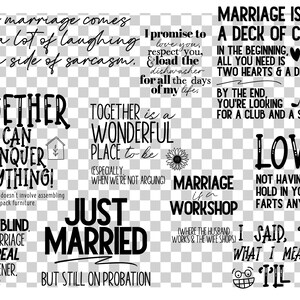 marriage comes
a lot of laughing
side of sarcasm.
I promise to
love you,
respect you,
& load the
dishwasher
for all the days
of my life.
MARRIAGE IS
A DECK OF C
IN THE BEGINNING,
ALL YOU NEED IS
TWO HEARTS & A D
BY THE END,
YOU'RE LOOKING
FOR A CLUB AND A S
GETHER
CAN
NQUER
YTHING!
doesn't involve assembling
pack furniture
TOGETHER is a
WONDERFUL
PLACE to be
(ESPECIALLY
WHEN WE'RE NOT ARGUING)
MARRIAGE
IS A
WORKSHOP
(WHERE THE HUSBAND
WORKS & THE WIFE SHOPS)
LOV
NOT HAVING
HOLD IN YO
FARTS ANY
BLIND,
RRIAGE
REAL
ENER.
JUST
MARRIED
BUT STILL ON PROBATION
I SAID, "I
WHAT I MEA
I'LL